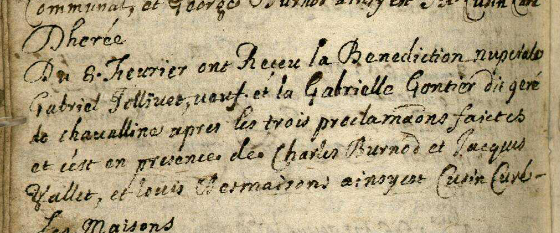 Communal, et George Burnod ainsy est
Dherée
Du 8. Feurier ont Receu la Benediction nuptiale
Gabriel Jellivet, veuf. et la Gabrielle Gontier dit geré
de chavalline apres les trois proclamãons faictes
et c'est en presence de Charles Burnod et Jacques
Vallet, et louis Desmaisons ainsy est Cusin Curé-
Les Maisons